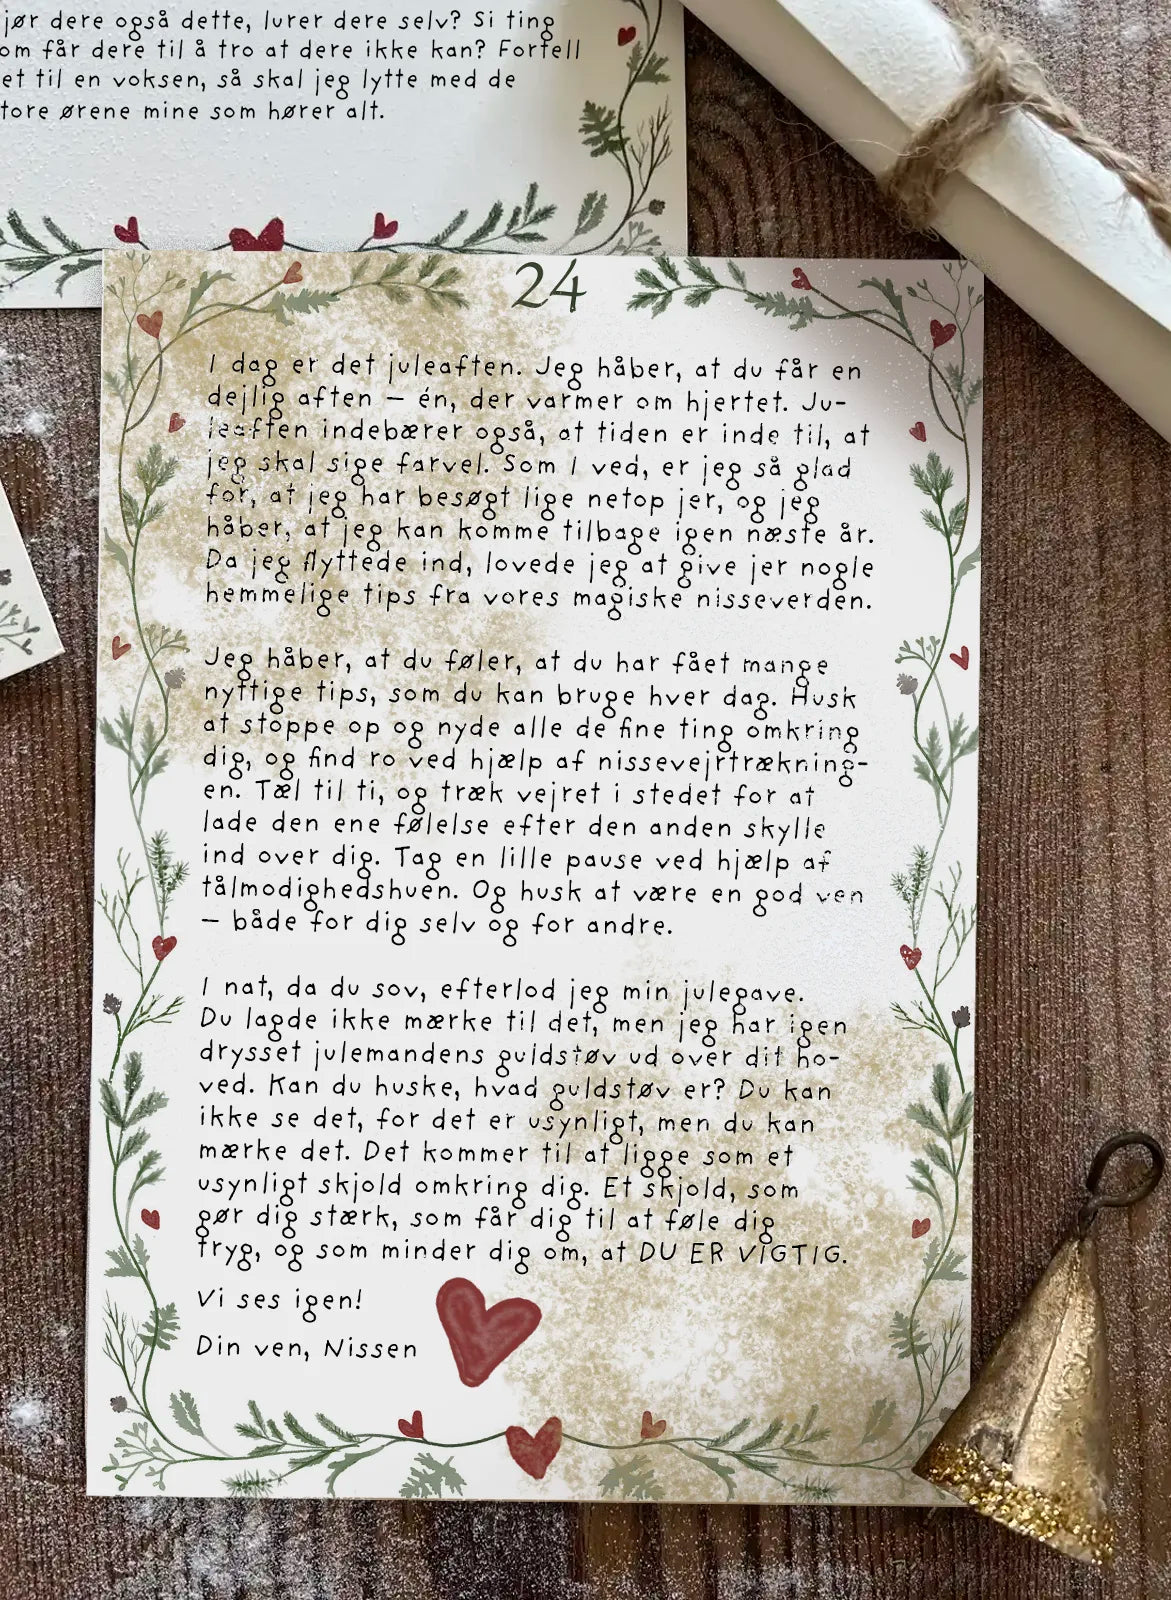 jør dere også dette, lurer dere selv? Si ting
om får dere til å tro at dere ikke kan? Fortell
et til en voksen, så skal jeg lytte med de
tore ørene mine som hører alt.
24
I dag er det juleaften. Jeg håber, at du får en
dejlig aften – én, der varmer om hjertet. Ju-
leaften indebærer også, at tiden er inde til, at
jeg skal sige farvel. Som I ved, er jeg så glad
for, at jeg har besøgt lige netop jer, og jeg
håber, at jeg kan komme tilbage igen næste år.
Da jeg flyttede ind, lovede jeg at give jer nogle
hemmelige tips fra vores magiske nisseverden.
Jeg håber, at du føler, at du har fået mange
nyttige tips, som du kan bruge hver dag. Husk
at stoppe op og nyde alle de fine ting omkring
dig, og find ro ved hjælp af nissevejrtrækning-
en. Tæl til ti, og træk vejret i stedet for at
lade den ene følelse efter den anden skylle
ind over dig. Tag en lille pause ved hjælp af
tålmodighedshuen. Og husk at være en god ven
– både for dig selv og for andre.
I nat, da du sov, efterlod jeg min julegave.
Du lagde ikke mærke til det, men jeg har igen
drysset julemandens guldstøv ud over dit ho-
ved. Kan du huske, hvad guldstøv er? Du kan
ikke se det, for det er usynligt, men du kan
mærke det. Det kommer til at ligge som et
usynligt skjold omkring dig. Et skjold, som
gør dig stærk, som får dig til at føle dig
tryg, og som minder dig om, at DU ER VIGTIG.
Vi ses igen!
Din ven, Nissen